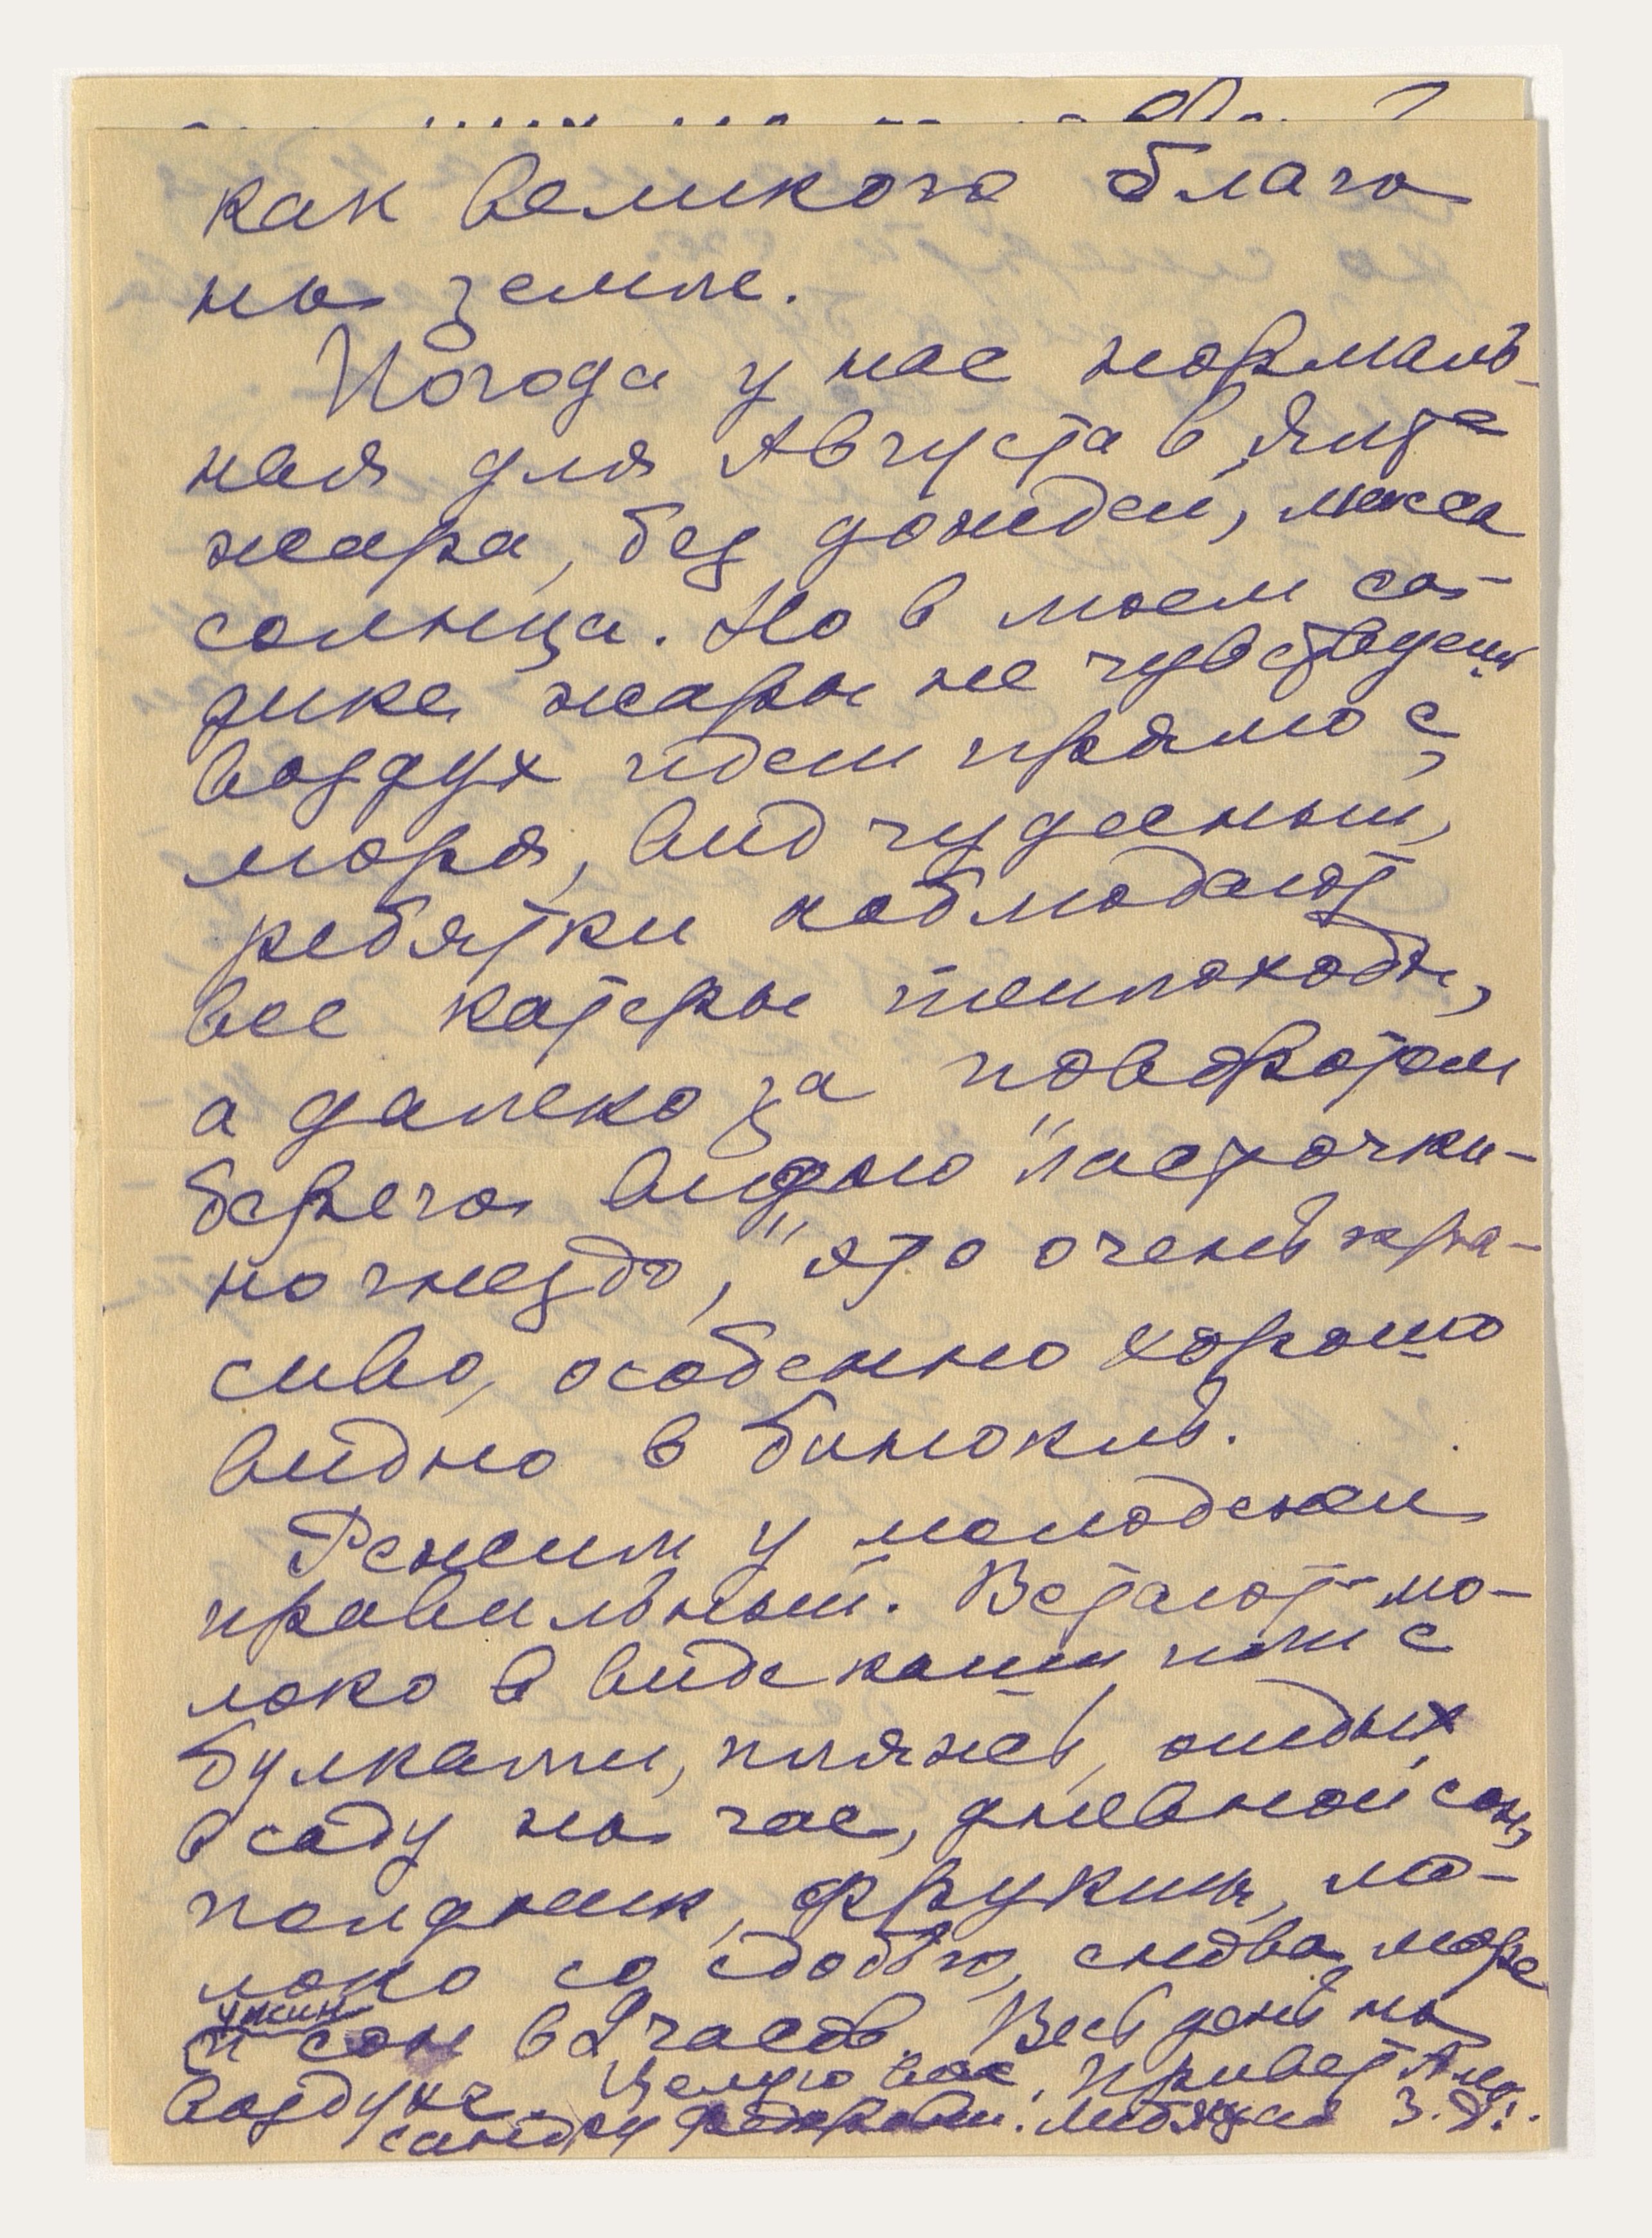 как великого блага
на земле.
Погода у нас нормаль-
ная для Августа в Ялте
жара, без дождей, масса
солнца. Но в моем са-
дике жары не чувствуешь
воздух идет прямо с
моря, вид чудесный,
ребятки наблюдают
все катеры теплоходы,
а далеко за поворотом
берега видно "ласточки-
но гнездо," это очень кра-
сиво, особенно хорошо
видно в бинокль.
Режим у молодежи
правильный. Встают мо-
локо в виде каши или с
булками, пляж, отдых
в саду на час, дневной сон,
полдник, фрукты, мо-
локо со сдобой, снова море
ужин
и сон в 9 часов. Весь день на
воздухе. Целую вас. Привет Алек
сандру! Любящая З.